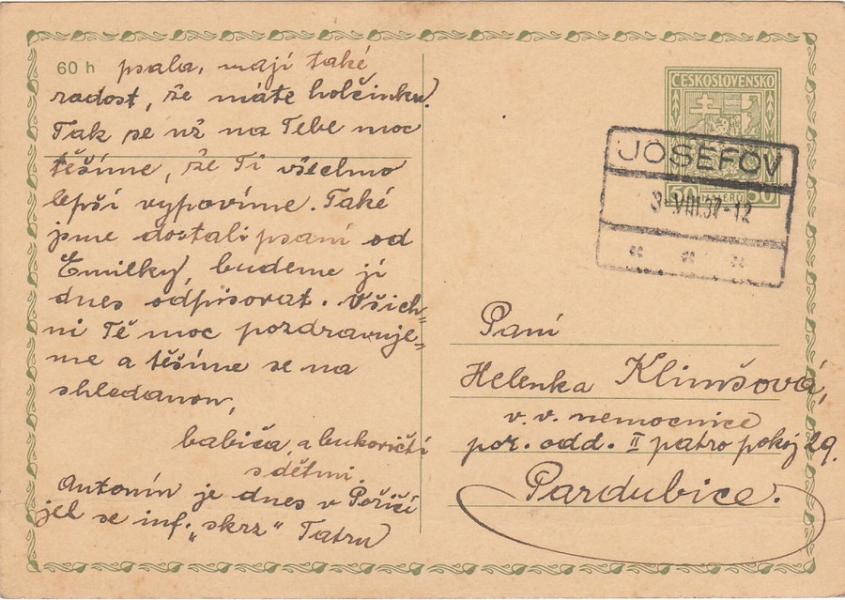 60 h
psala, mají také
radost, že máte holčinku.
Tak se už na Tebe moc
těšíme, že Ti všechno
lepší vypovíme. Také
jsme dostali psaní od
Emilky, budeme jí
dnes odpisovat. Všich-
ni Tě moc pozdravuje-
me a těšíme se na
shledanou,
babička a bukovičtí
s dětmi.
Antonín je dnes v Poříčí
jel se inf. „skrz" Tatru
ČESKOSLOVENSKO
50 HALÉŘŮ 50
JOSEFOV
3-VIII.37-12
Paní
Helenka Klimšová,
v. v. nemocnice
por. odd. II patro pokoj 29.
Pardubice.